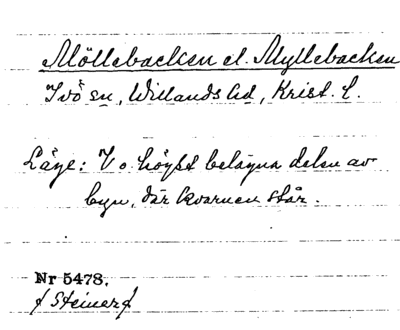 Möllebacken el. Myllebacken
Ivö sn, Willands hd, Krist. l.
Läge: V o. högst belägna delen av
byn, där kvarnen står.
Nr 5478.